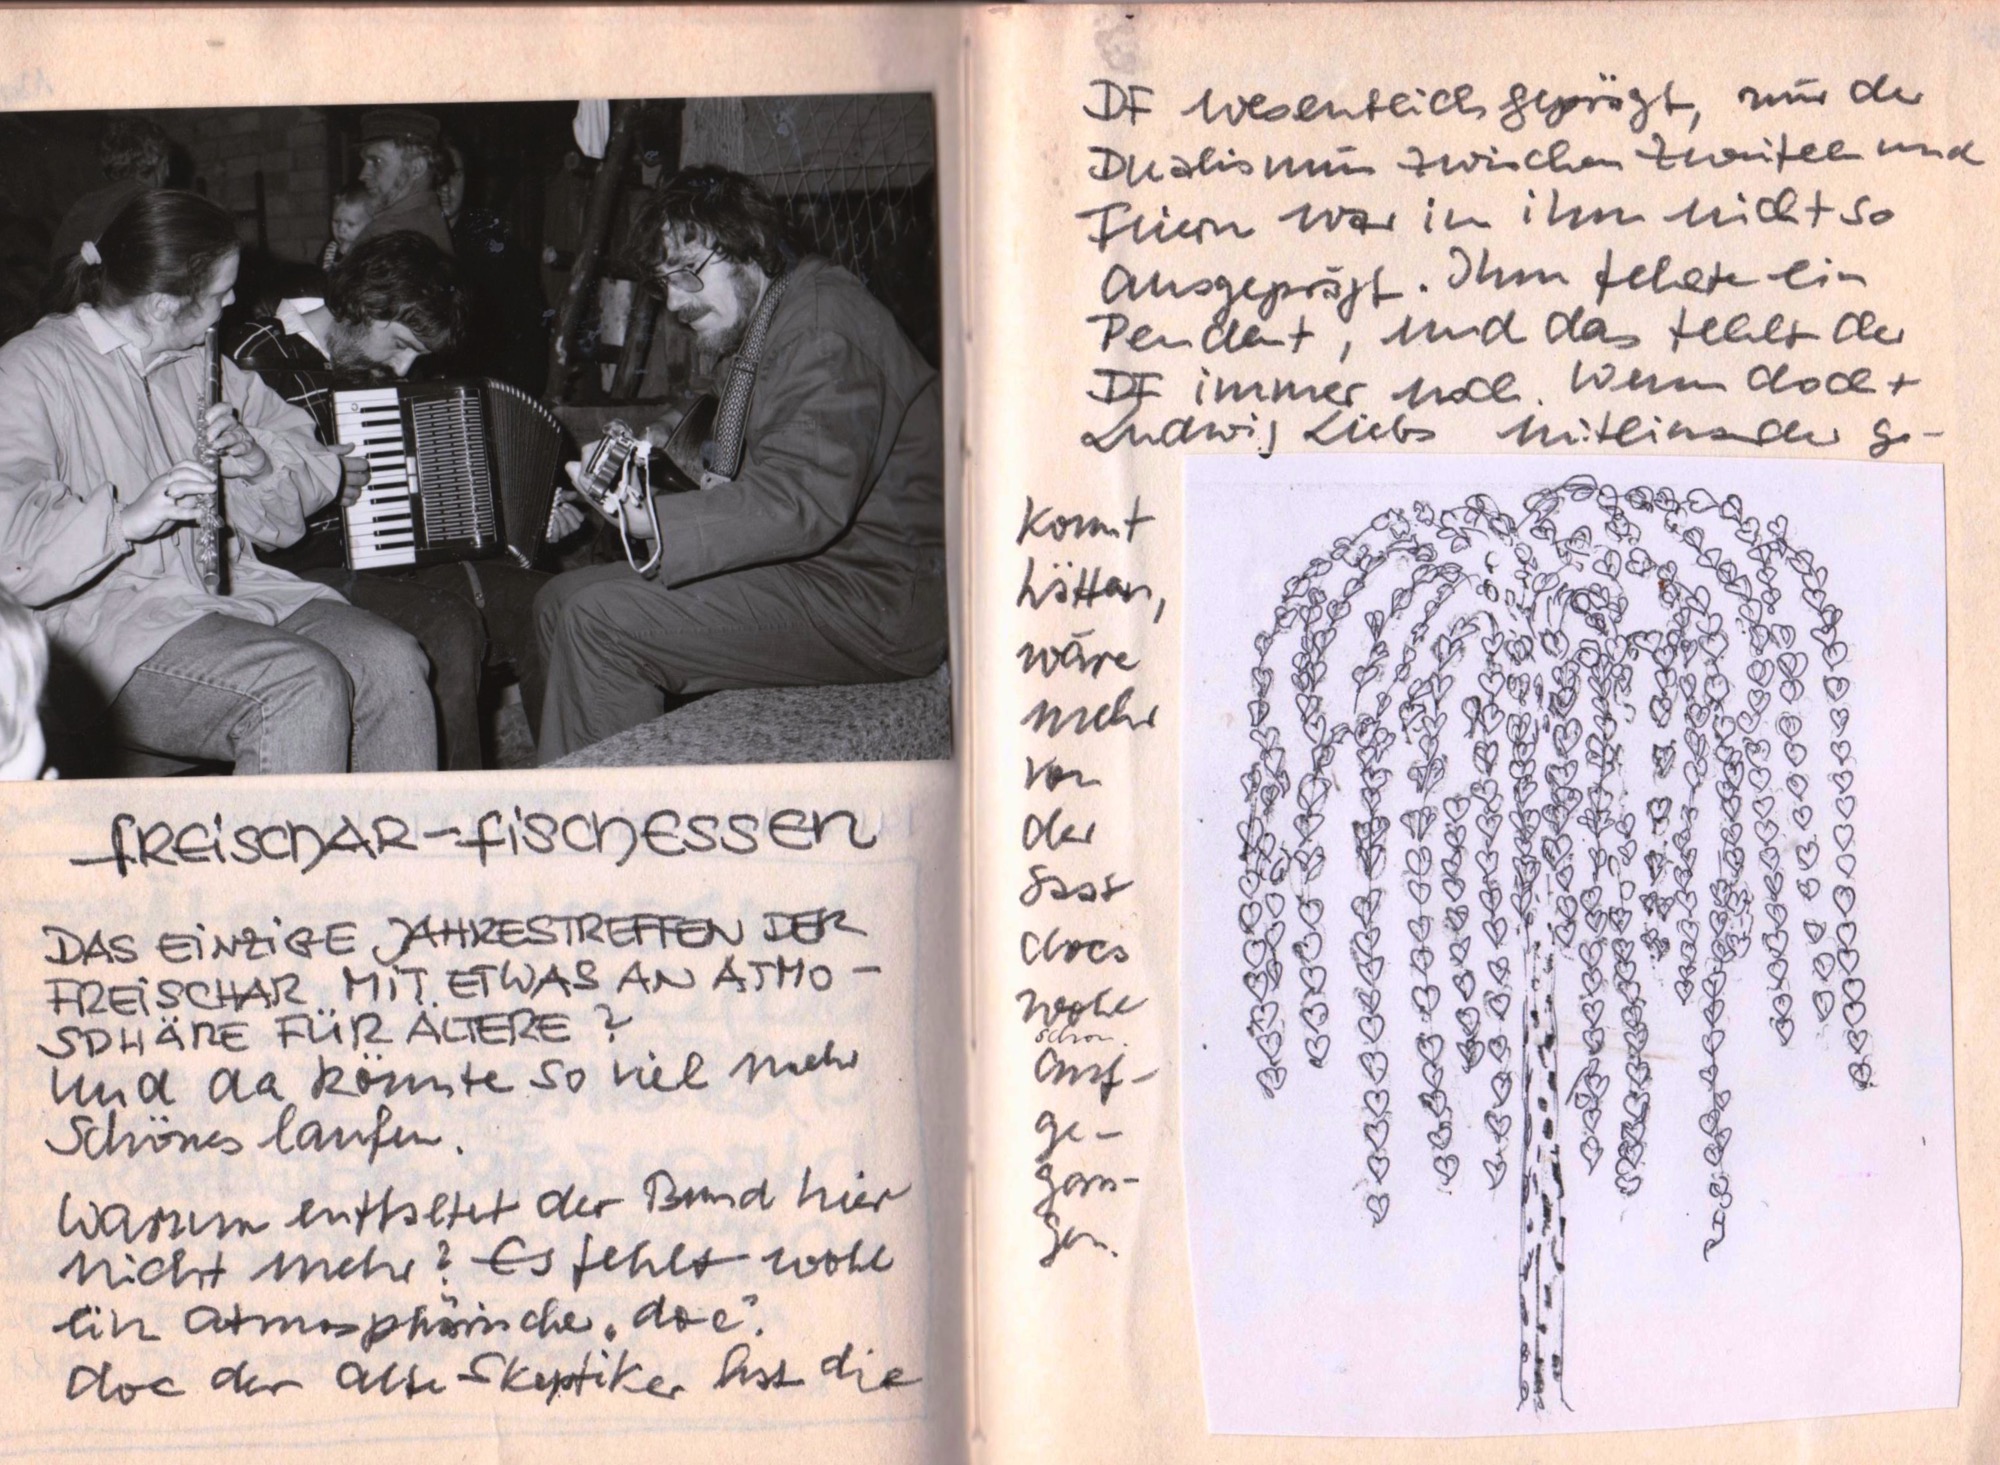 FREISCHAR-FISCHESSEN
DAS EINZIGE JAHRESTREFFEN DER
FREISCHAR MIT ETWAS AN ATMO-
SPHÄRE FÜR ÄLTERE?
Und da könnte so viel mehr
Schönes laufen.
Warum entfaltet der Bund hier
nicht mehr? Es fehlt wohl
ein atmosphärischer „doc“.
doc der alte Skeptiker hat die
DF wesentlich geprägt, nur der
Dualismus zwischen Zweifeln und
Feiern war in ihm nicht so
ausgeprägt. Ihm fehlte ein
Pendant, und das fehlt der
DF immer noch. Wenn doch +
Ludwig Liebs miteinander ge-
konnt
hätten,
wäre
mehr
von
der
Saat
docs
wohl
schon
auf-
ge-
gan-
gen.